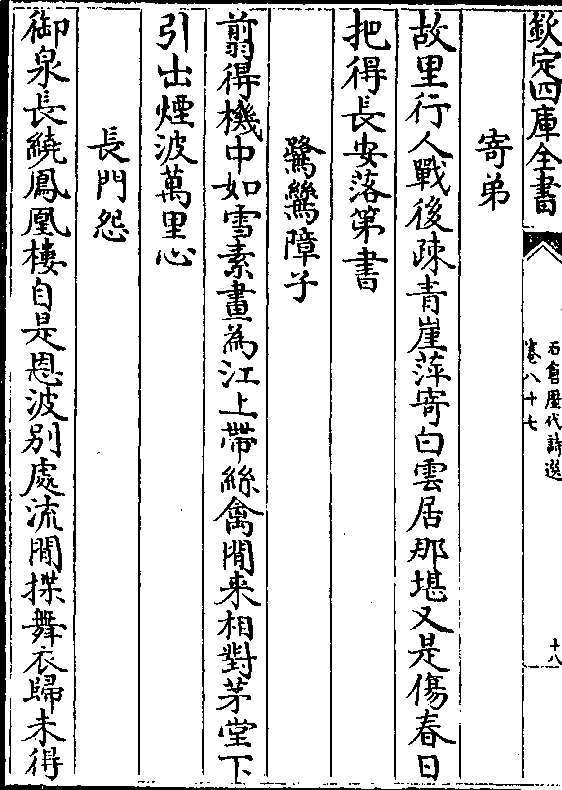 欽定四庫全書
石倉歷代詩選
卷八十七
十八
寄弟
故里行人戰後疎青崖萍寄白雲居那堪又是傷春日
把得長安落第書
鷺鷥障子
翦得機中如雪素畫為江上帶絲禽閒来相對茅堂下
引出煙波萬里心
長門怨
御泉長繞鳳凰樓自是恩波別處流閒揲舞衣歸未得